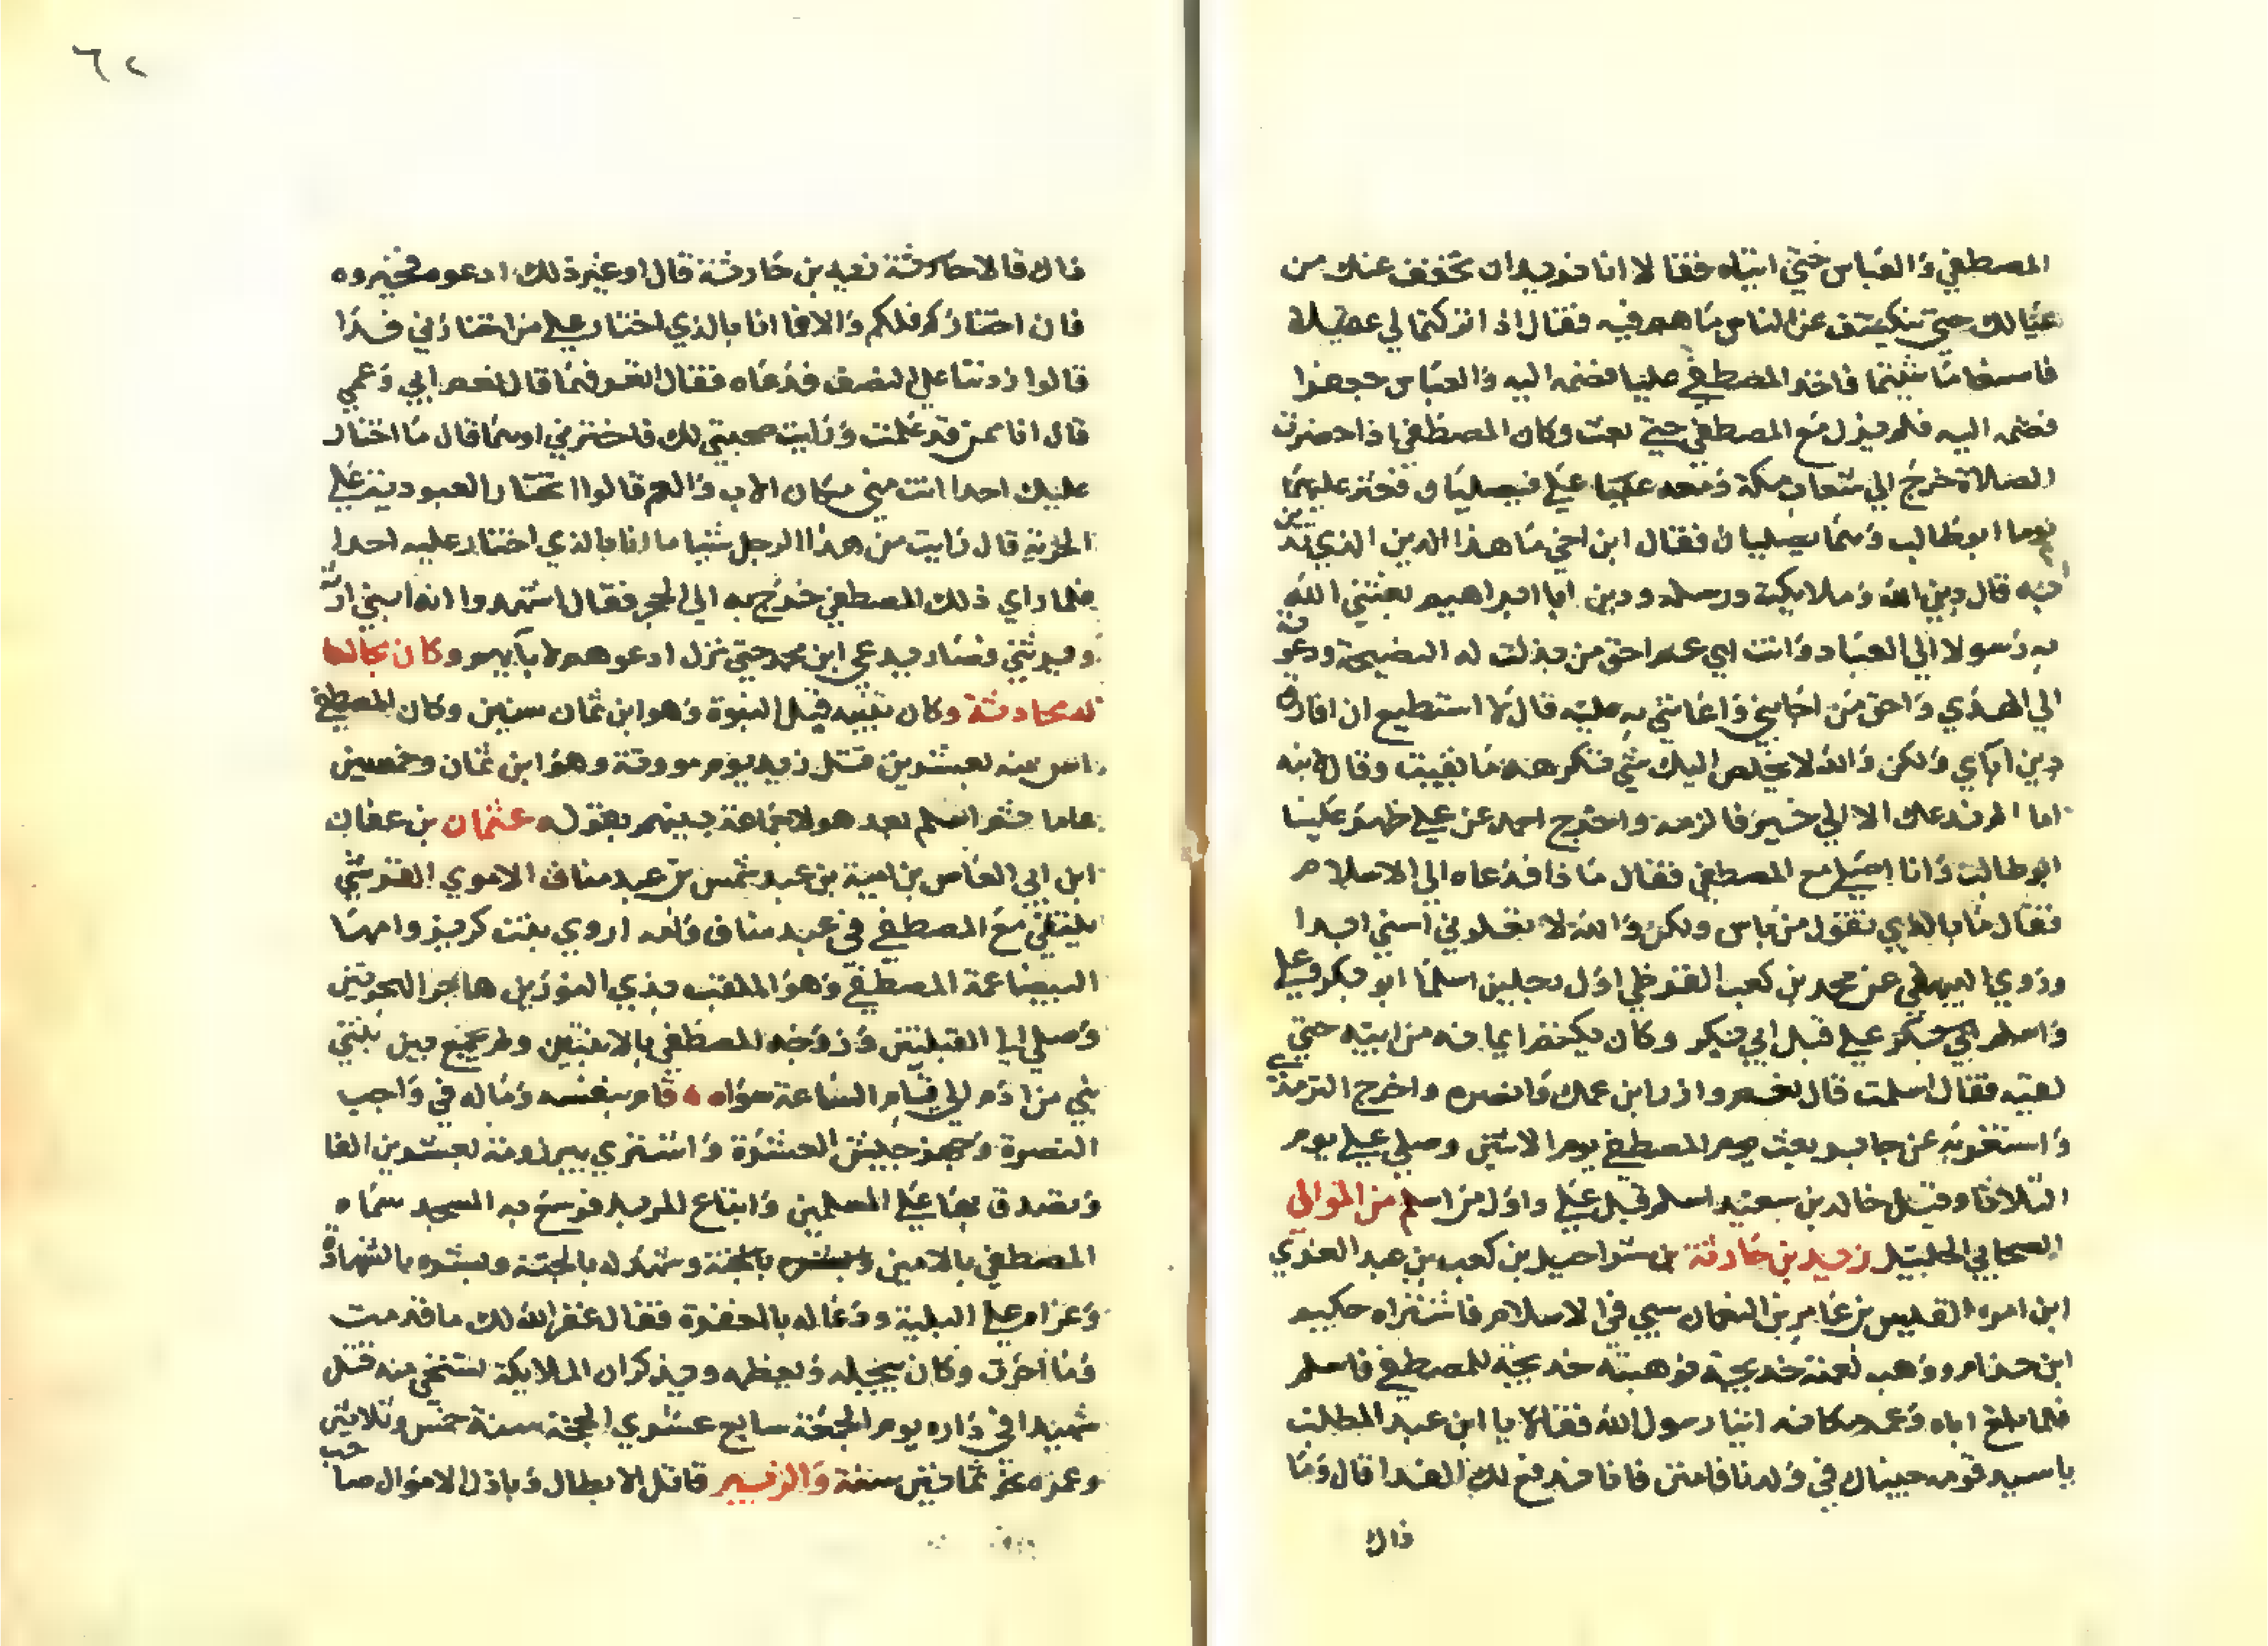 المصطفي والعباس حتي اتياه فقالا انا نريد ان نخفف عنك من
عيالك حتي ينكشف عن الناس ما هم فيه فقال اذا تركتما لي عقيلا
فاصنعا ما شئتما فاخذ المصطفي عليا فضمه اليه والعباس جعفرا
فضمه اليه فلم يزل مع المصطفي حتي بعث وكان المصطفي اذا حضرت
الصلاة خرج الي شعاب مكة ومعه علي فيصليان فعثر عليهما
يوما ابو طالب وهما يصليان فقال ابن اخي ما هذا الدين الذي تدين
به قال دين الله وملايكته ورسله ودين ابينا ابراهيم بعثني الله
به رسولا الي العباد وانت اي عم احق من بذلت له النصيحة ودعوته
الي الهدي واحق من اجابني واعانني عليه قال لا استطيع ان افارق
دين آباي ولكن والله لا يخلص اليك شي تكرهه ما بقيت وقال لابنه
اما انه لم يدعك الا الي خير فالزمه واخرج احمد عن علي ظهر علينا
ابو طالب وانا اصلي مع المصطفي فقال ماذا فدعاه الي الاسلام
فقال ما بالذي تقول من باس ولكن والله لا تعلوني استي ابدا
وروي البيهقي عن محمد بن كعب القرظي اول رجلين اسلما ابو بكر وعلي
واسلم علي قبل ابي بكر وكان يكتم ايمانه من ابيه حتي
لقيه فقال اسلمت قال نعم وازر ابن عمك وانصره واخرج الترمذي
واستغربه عن جابر بعث المصطفي يوم الاثنين وصلي علي يوم
الثلاثا وقيل خالد بن سعيد اسلم قبل علي واول من اسلم من الموالي
الصحابي الجليل زيد بن حارثة بن شراحيل بن كعب بن عبد العزي
ابن امرء القيس بن عامر بن النعمان سبي في الاسلام فاشتراه حكيم
ابن حزام ووهبه لعمته خديجة فوهبته خديجة للمصطفي فاسلم
فلما بلغ اباه وعمه مكانه اتيا رسول الله فقالا يا ابن عبد المطلب
يا سيد قومه جيناك في ولدنا فامنن فانا ندفع لك الفدا قال وما
ذاك
٦٢
ذاك قالا حارثة زيد بن حارثة قال او غير ذلك ادعوه فخيروه
فان اختاركم فلكم والا فما انا بالذي اختار علي من اختارني فدا
قالوا زدتنا علي النصف فدعاه فقال اتعرفهما قال نعم ابي وعمي
قال انا من قد علمت ورايت صحبتي لك فاخترني او هما قال ما اختار
عليك احدا انت مني مكان الاب والعم قالوا اتختار العبودية علي
الحرية قال رايت من هذا الرجل شيا ما انا بالذي اختار عليه احدا
فلما راي ذلك المصطفي خرج به الي الحجر فقال اشهدوا انه ابني ارثه
ويرثني فصار يدعي ابن محمد حتي نزل ادعوهم لابآيهم وكان يقال
له محارثة وكان تبنيه قبل النبوة وهو ابن ثمان سنين وكان المصطفي
اسن منه بعشرين قتل زيد يوم موتة وهو ابن ثمان وخمسين
عاما ثم اسلم بعد هولا جماعة بينهم بقوله عثمان بن عفان
ابن ابي العاص بن امية بن عبد شمس بن عبد مناف الاموي القرشي
يلتقي مع المصطفي في عبد مناف وامه اروي بنت كريز وامها
البيضا عمة المصطفي وهو الملقب بذي النورين هاجر الهجرتين
وصلي الي القبلتين وزوجه المصطفي بالابنتين ولم يجمع بين بنتي
نبي من ادم الي قيام الساعة سواه قام بنفسه وماله في واجب
النصرة وجهز جيش العسرة واشتري بير رومة بعشرين الفا
وتصدق بها علي المسلمين وابتاع المربد فوسع به المسجد سماه
المصطفي بالامين وبالجنة وشهد له بالجنة وبشره بالشهادة
وعزاه علي البلية ودعا له بالمغفرة فقال غفر الله لك ما قدمت
وما اخرت وكان يبجله ويعظمه ويذكر ان الملايكة تستحي منه قتل
شهيدا في داره يوم الجمعة سابع عشر ذي الحجة سنة خمس وثلاثين
وعمره نحو ثمانين سنة والزبير قاتل الابطال وباذل الاموال صاحب